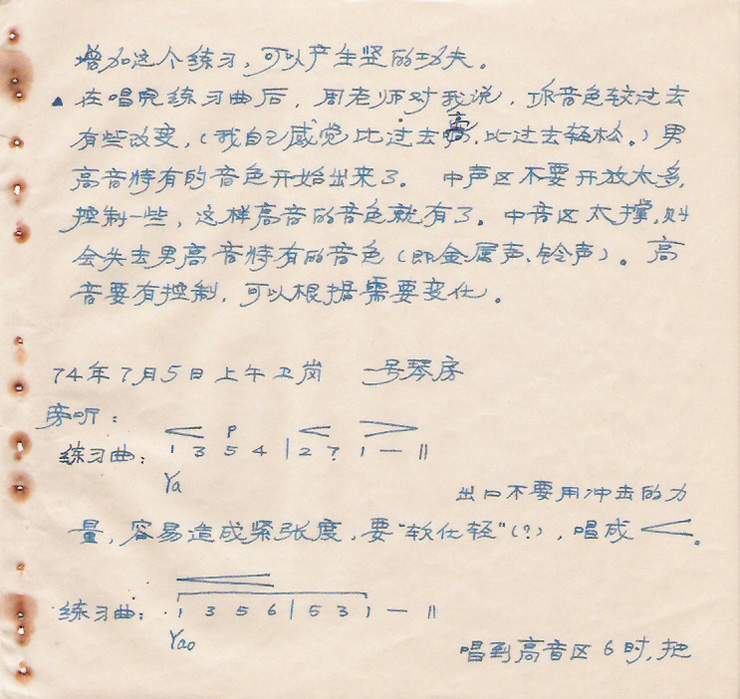 增加这个练习,可以产生竖的功夫。
▲ 在唱完练习曲后,周老师对我说,你音色较过去
有些改变,(我自己感觉比过去亮,比过去轻松。)男
高音特有的音色开始出来了。 中声区不要开放太多,
控制一些,这样高音的音色就有了。中音区太撑,则
会失去男高音特有的音色(即金属声、铃声)。高
音要有控制,可以根据需要变化。
74年7月5日上午卫岗 一号琴房
旁听:
p
练习曲: 1 3 5 4 | 2 7 1 — ||
Ya
出口不要用冲击的力
量,容易造成紧张度,要"软化轻"(?),唱成 < 。
练习曲: 1 3 5 6 | 5 3 1 — ||
Yao
唱到高音区6时,把